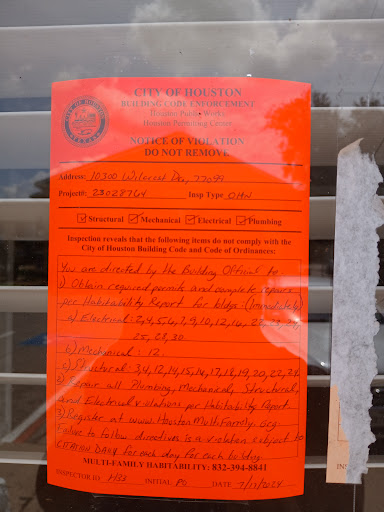 CITY OF HOUSTON
BUILDING CODE ENFORCEMENT
Houston Public Works
Houston Permitting Center
NOTICE OF VIOLATION
DO NOT REMOVE
Address: 10300 Wilcrest Dr, 77099
Project#: 23028764 Insp Type OHW
Structural Mechanical Electrical Plumbing
Inspection reveals that the following items do not comply with the
City of Houston Building Code and Code of Ordinances:
You are directed by the Building Official to
1) Obtain required permits and complete repairs
per Habitability Report for bldgs: (Immediately)
a) Electrical: 2,4,5,6,7,9,10,12,16, 22,
25, 28, 30.
b) Mechanical: 12.
c) Structural: 3,4,12,14,15,16,17,18,19,20,22,24.
2) Repair all Plumbing, Mechanical, Structural,
and Electrical violations per Habitability Report.
3) Register at www.HoustonMultiFamily.org.
Failure to follow directives is a violation subject to
CITATION DAILY for each day for each building.
MULTI-FAMILY HABITABILITY: 832-394-8841
INSPECTOR ID INITIAL PO DATE 7/17/2024